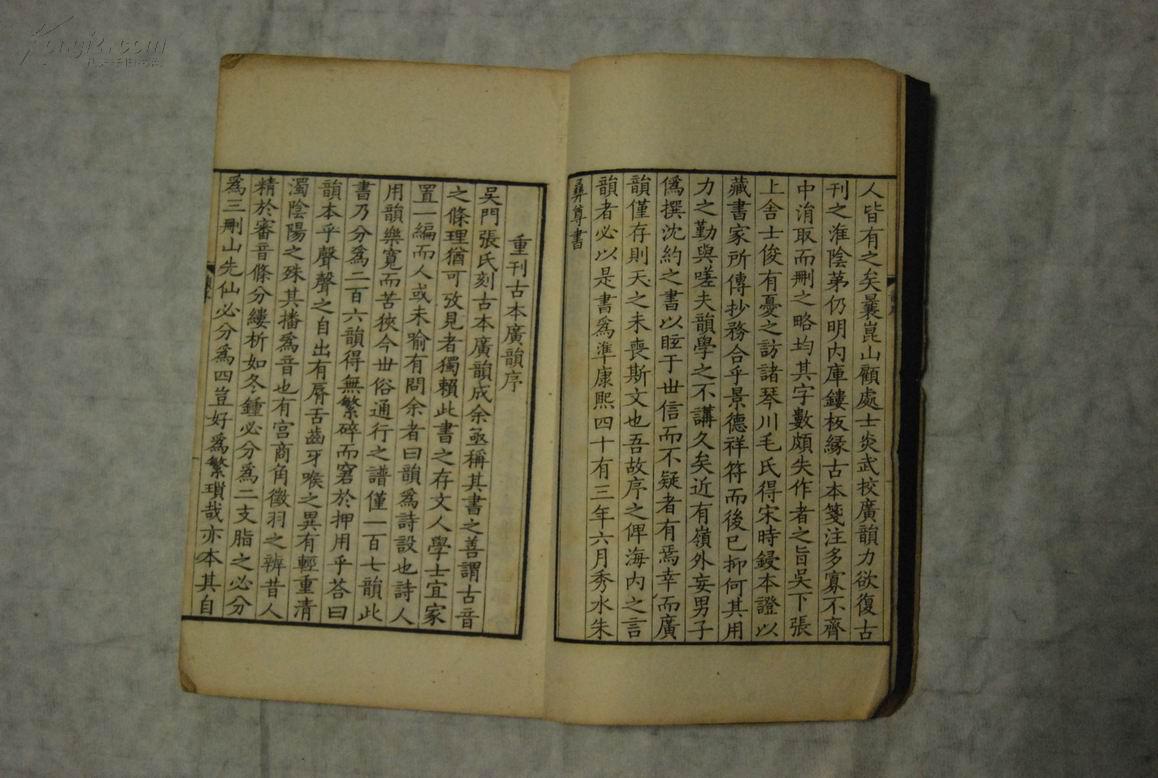 人皆有之矣曩崑山顧處士炎武校廣韻力欲復古
刊之淮陰第仍明内庫鏤板緣古本箋注多寡不齊
中涓取而刪之略均其字數頗失作者之旨吳下張
上舍士俊有憂之訪諸琴川毛氏得宋時鋟本證以
藏書家所傳抄務合乎景德祥符而後已抑何其用
力之勤與嗟夫韻學之不講久矣近有嶺外妄男子
僞撰沈約之書以眩于世信而不疑者有焉幸而廣
韻僅存則天之未喪斯文也吾故序之俾海内之言
韻者必以是書爲準康熙四十有三年六月秀水朱
彝尊書
重刊古本廣韻序
吳門張氏刻古本廣韻成余亟稱其書之善謂古音
之條理猶可攷見者獨賴此書之存文人學士宜家
置一編而人或未喻有問余者曰韻爲詩設也詩人
用韻樂寛而苦狹今世俗通行之譜僅一百七韻此
書乃分爲二百六韻得無繁碎而窘於押用乎荅曰
韻本乎聲聲之自出有脣舌齒牙喉之異有輕重清
濁陰陽之殊其播爲音也有宫商角徵羽之辨昔人
精於審音條分縷析如冬鍾必分爲二支脂之必分
爲三刪山先仙必分爲四豈好爲繁瑣哉亦本其自
Kongfz.com